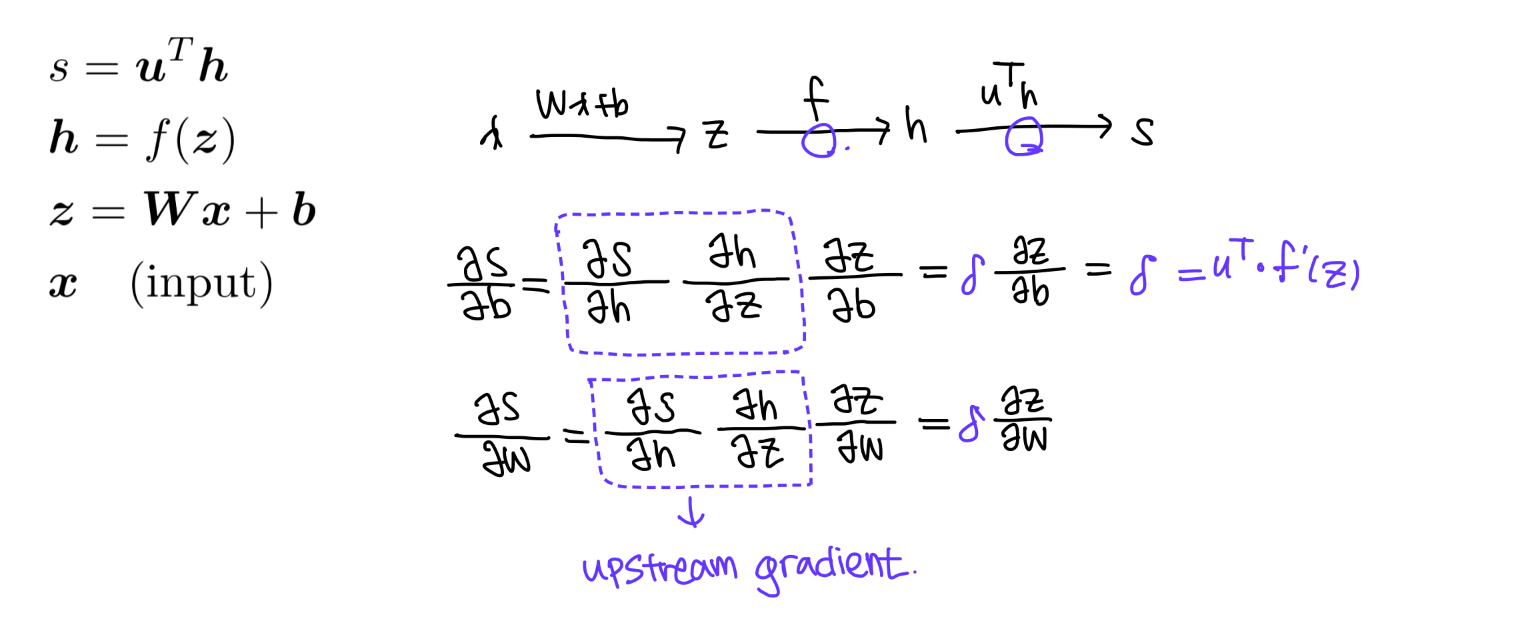 s = uᵀh
h = f(z)
z = Wx + b
x (input)
x Wx+b → z f → h uᵀh → s
∂s/∂b = ∂s/∂h ∂h/∂z ∂z/∂b = δ ∂z/∂b = δ = uᵀ·f'(z)
∂s/∂w = ∂s/∂h ∂h/∂z ∂z/∂w = δ ∂z/∂w
upstream gradient.